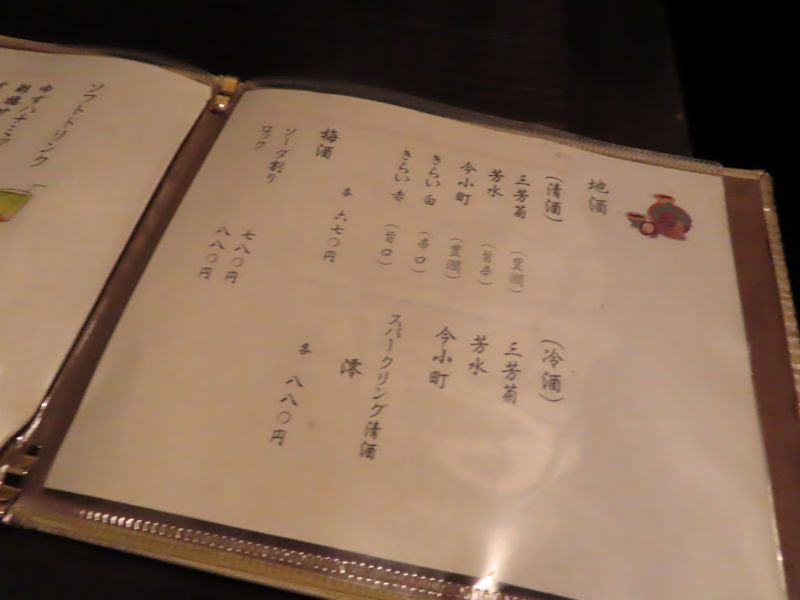 地酒
（清酒）
三芳菊 （豊潤）
芳水 （旨辛）
今小町 （豊潤）
きらい 白 （辛口）
きらい 赤 （旨口）
各 六七〇円
梅酒
ソーダ割り 七八〇円
ロック 八八〇円
（冷酒）
三芳菊
芳水
今小町
スパークリング清酒
澪
各 八八〇円
ソフトドリンク
ゆずハチミツ